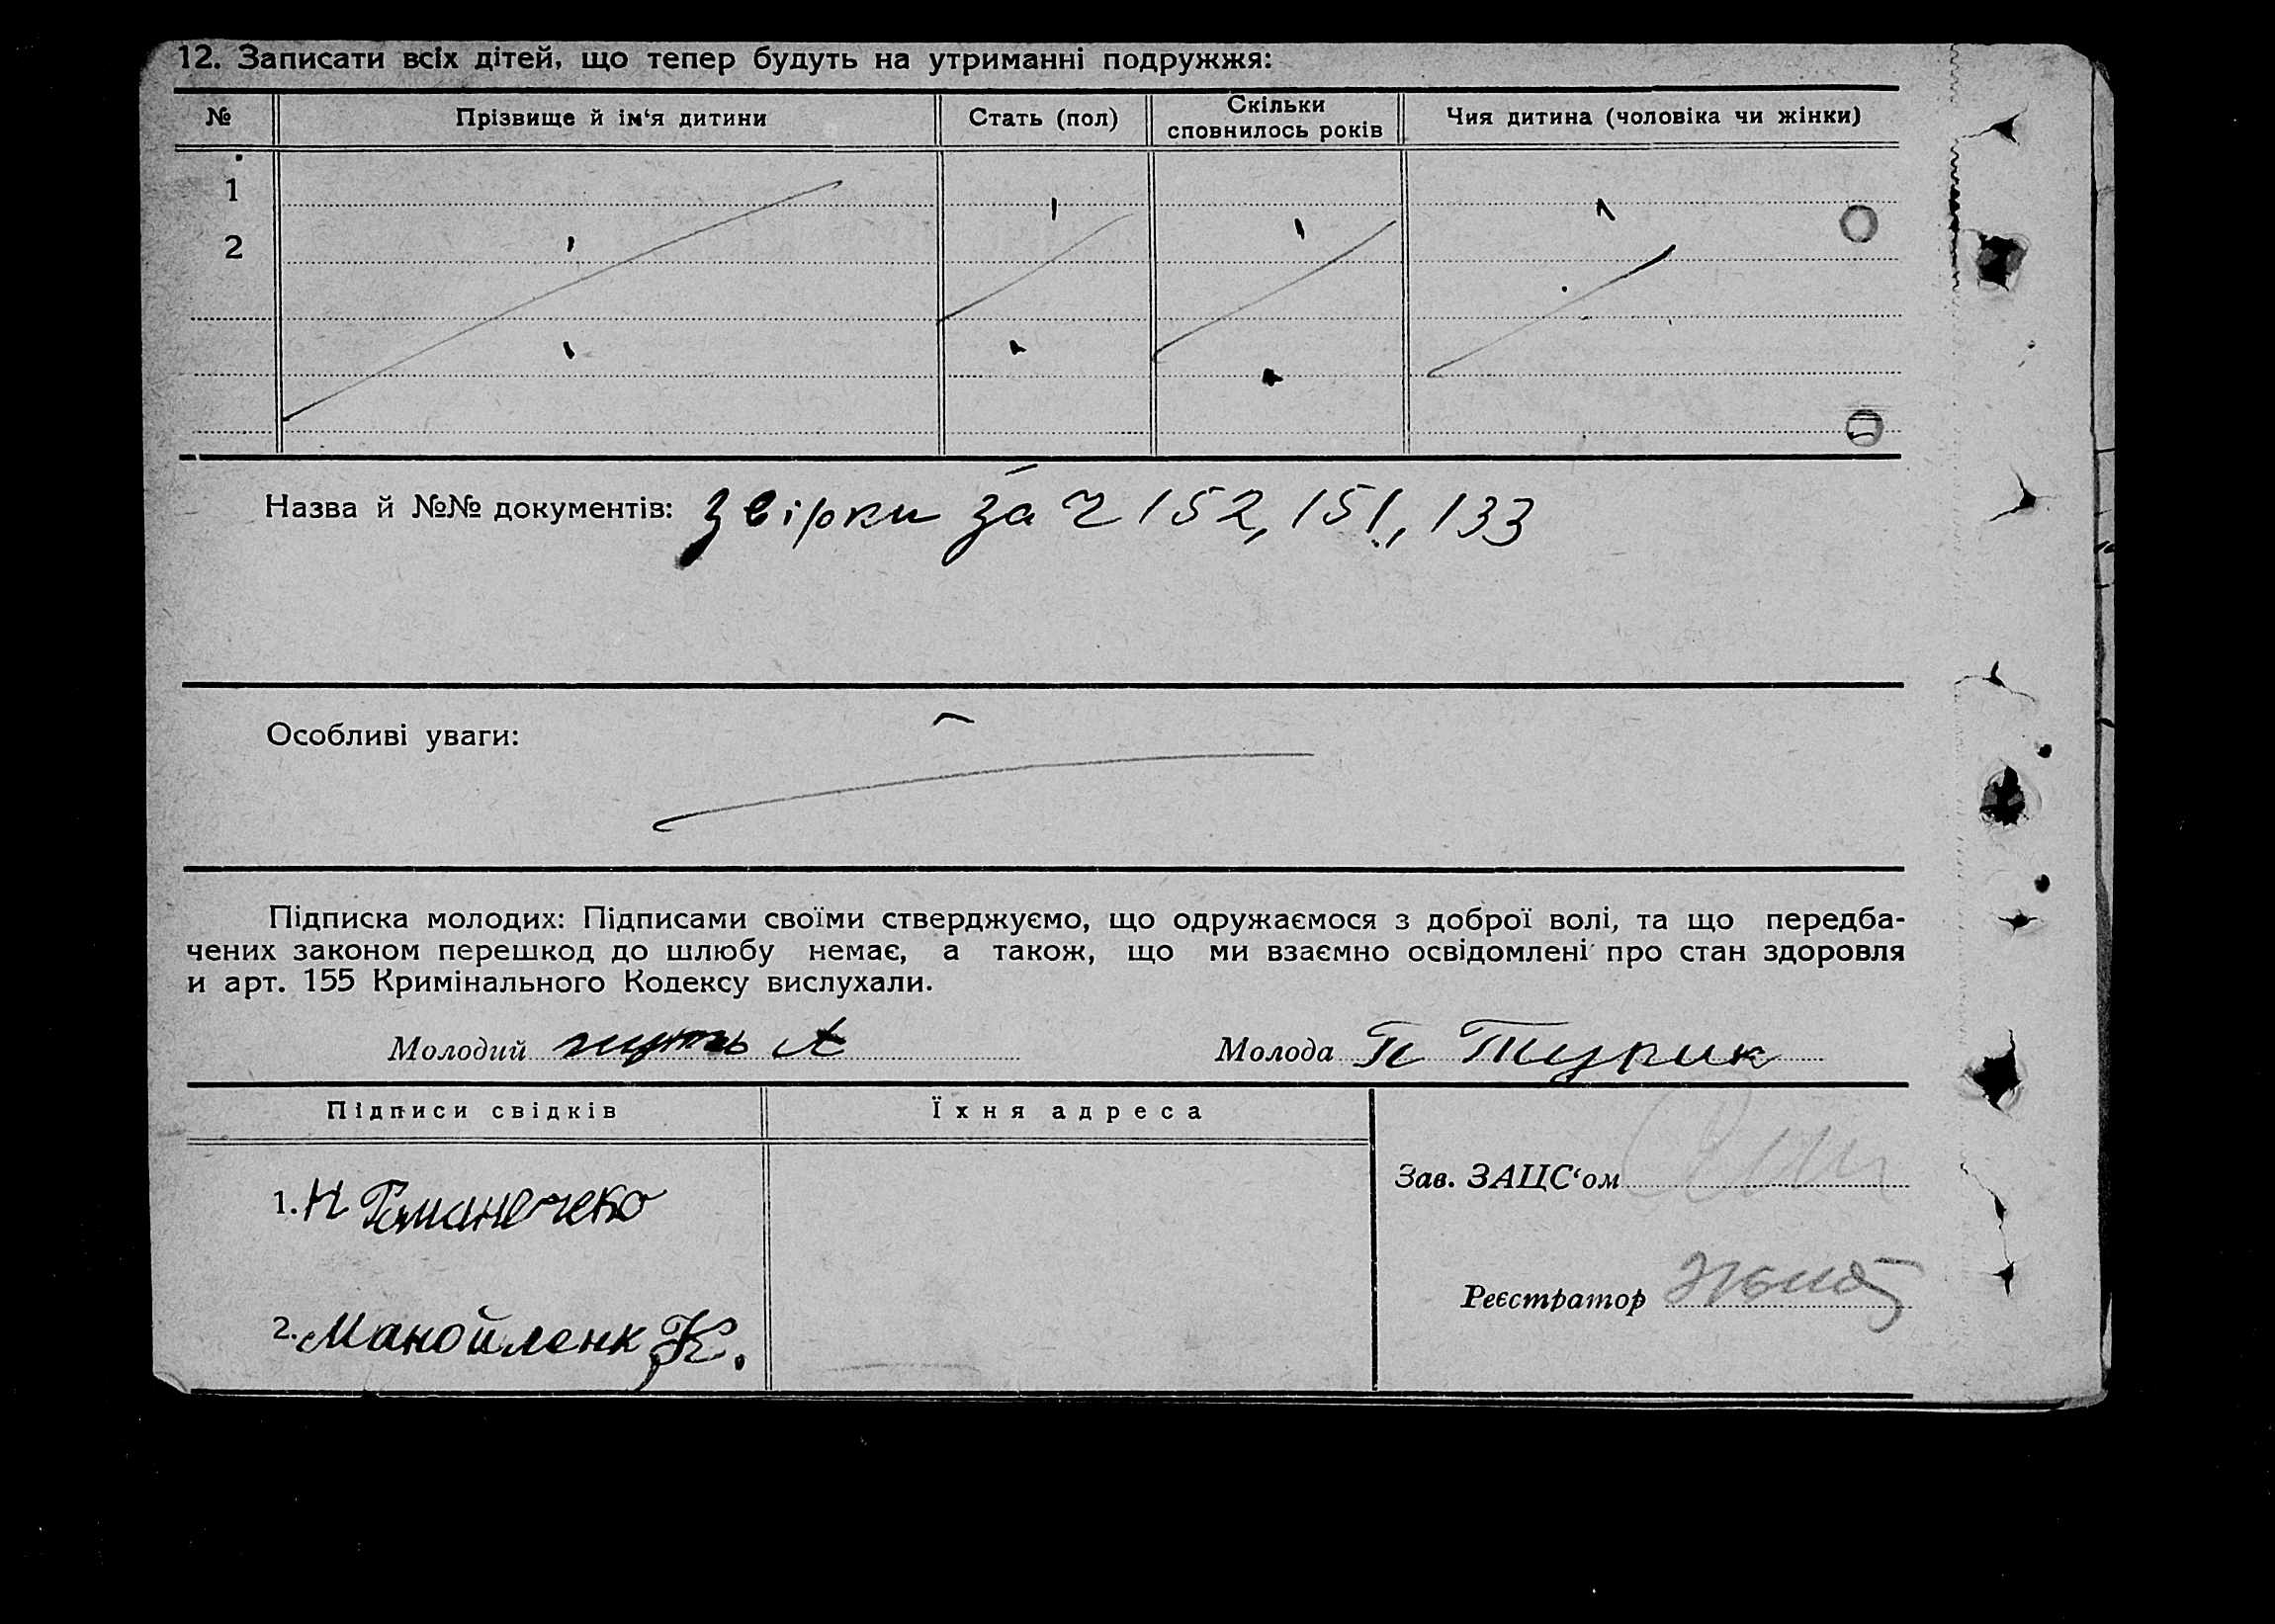 12. Записати всіх дітей, що тепер будуть на утриманні подружжя:
№ Прізвище й ім‘я дитини Стать (пол) Скільки сповнилось років Чия дитина (чоловіка чи жінки)
1
2
Назва й №№ документів: звірки за ч 152, 151, 133
Особливі уваги:
Підписка молодих: Підписами своїми стверджуємо, що одружаємося з доброї волі, та що передба-
чених законом перешкод до шлюбу немає, а також, що ми взаємно освідомлені про стан здоровля
и арт. 155 Кримінального Кодексу вислухали.
Молодий А Молода П Турик
Підписи свідків Їхня адреса
Зав. ЗАЦС‘ом
1. Н
Реєстратор
2. Манойленк К.